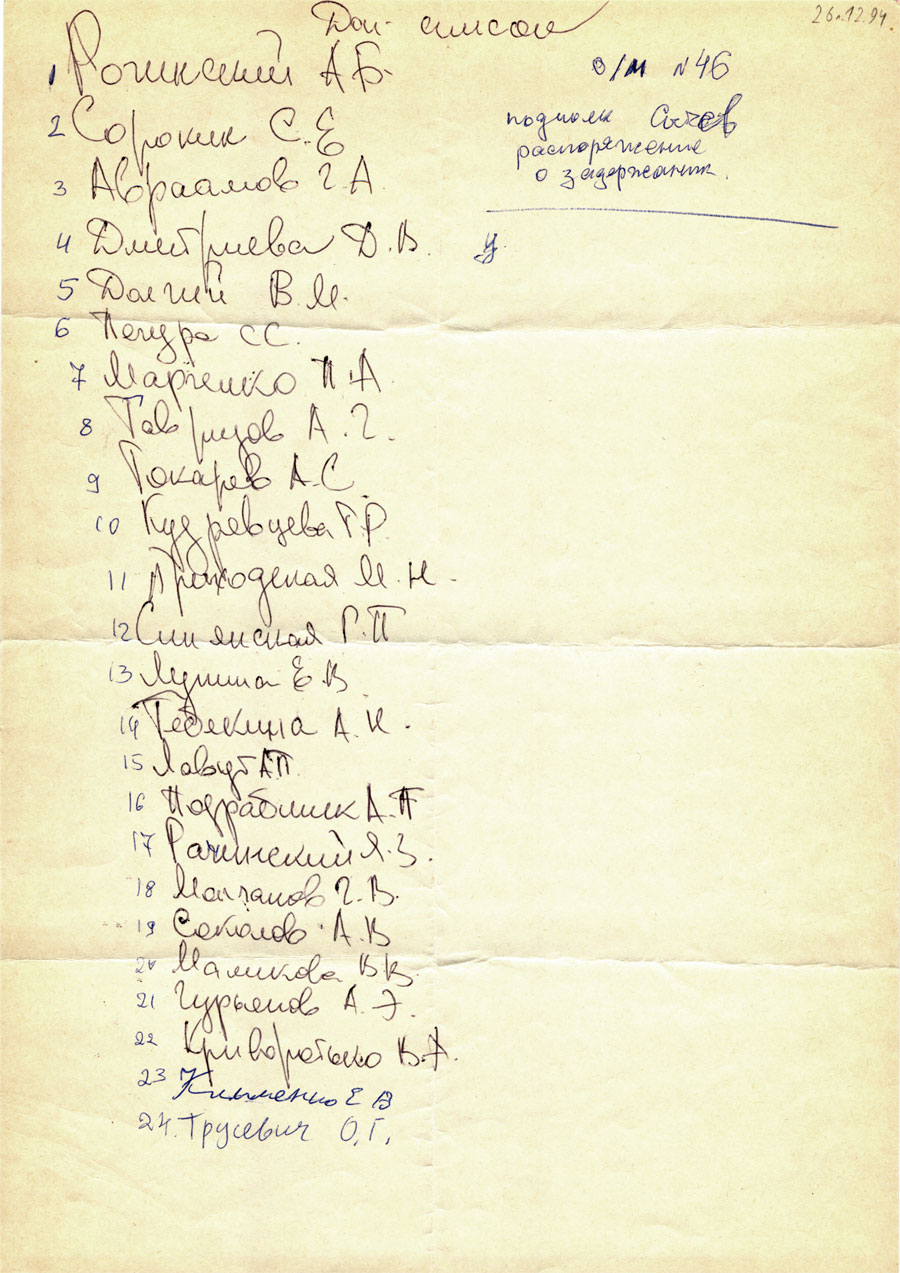 26.12.94.
Доп. список
о/м №46
подполк Сычев
распоряжение
о задержании.
у.
1 Рогинский А Б.
2 Сорокин С.Е
3 Авраамов Г.А.
4 Дмитриева Д.В.
5 Долгий В.М.
6 Печуро СС.
7 Марченко П.А
8 Тавризов А.Г.
9 Токарев А.С.
10 Кудрявцева Г.Р.
11 Приходская М.Н.
12 Синянская Г.П
13 Лунина Е.В
14 Тебекина А.И.
15 Лавут АП.
16 Подрабинек А.П
17 Рачинский Я.З.
18 Молчанов Г.В.
19 Соколов А.В
20 Маликова ВВ.
21 Гурьянов А.Э.
22 Криворотько В.А.
23 Клименко Е В
24. Трусевич О.Г.